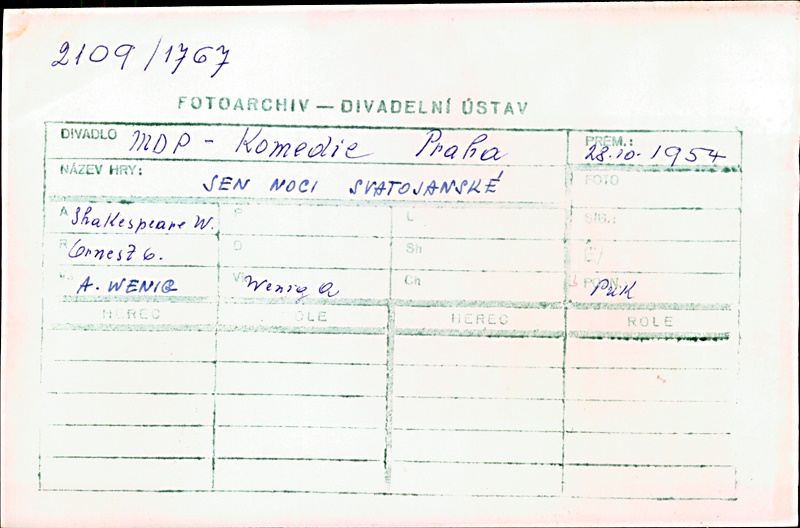 2109/1767
FOTOARCHIV — DIVADELNÍ ÚSTAV
DIVADLO MDP - Komedie Praha PREM.: 28.10.1954
NÁZEV HRY: SEN NOCI SVATOJANSKÉ FOTO
A Shakespeare W. P L SIG.:
R Ornest O. D Sh
A. WENIG Wenig A Ch Puk
HEREC ROLE HEREC ROLE